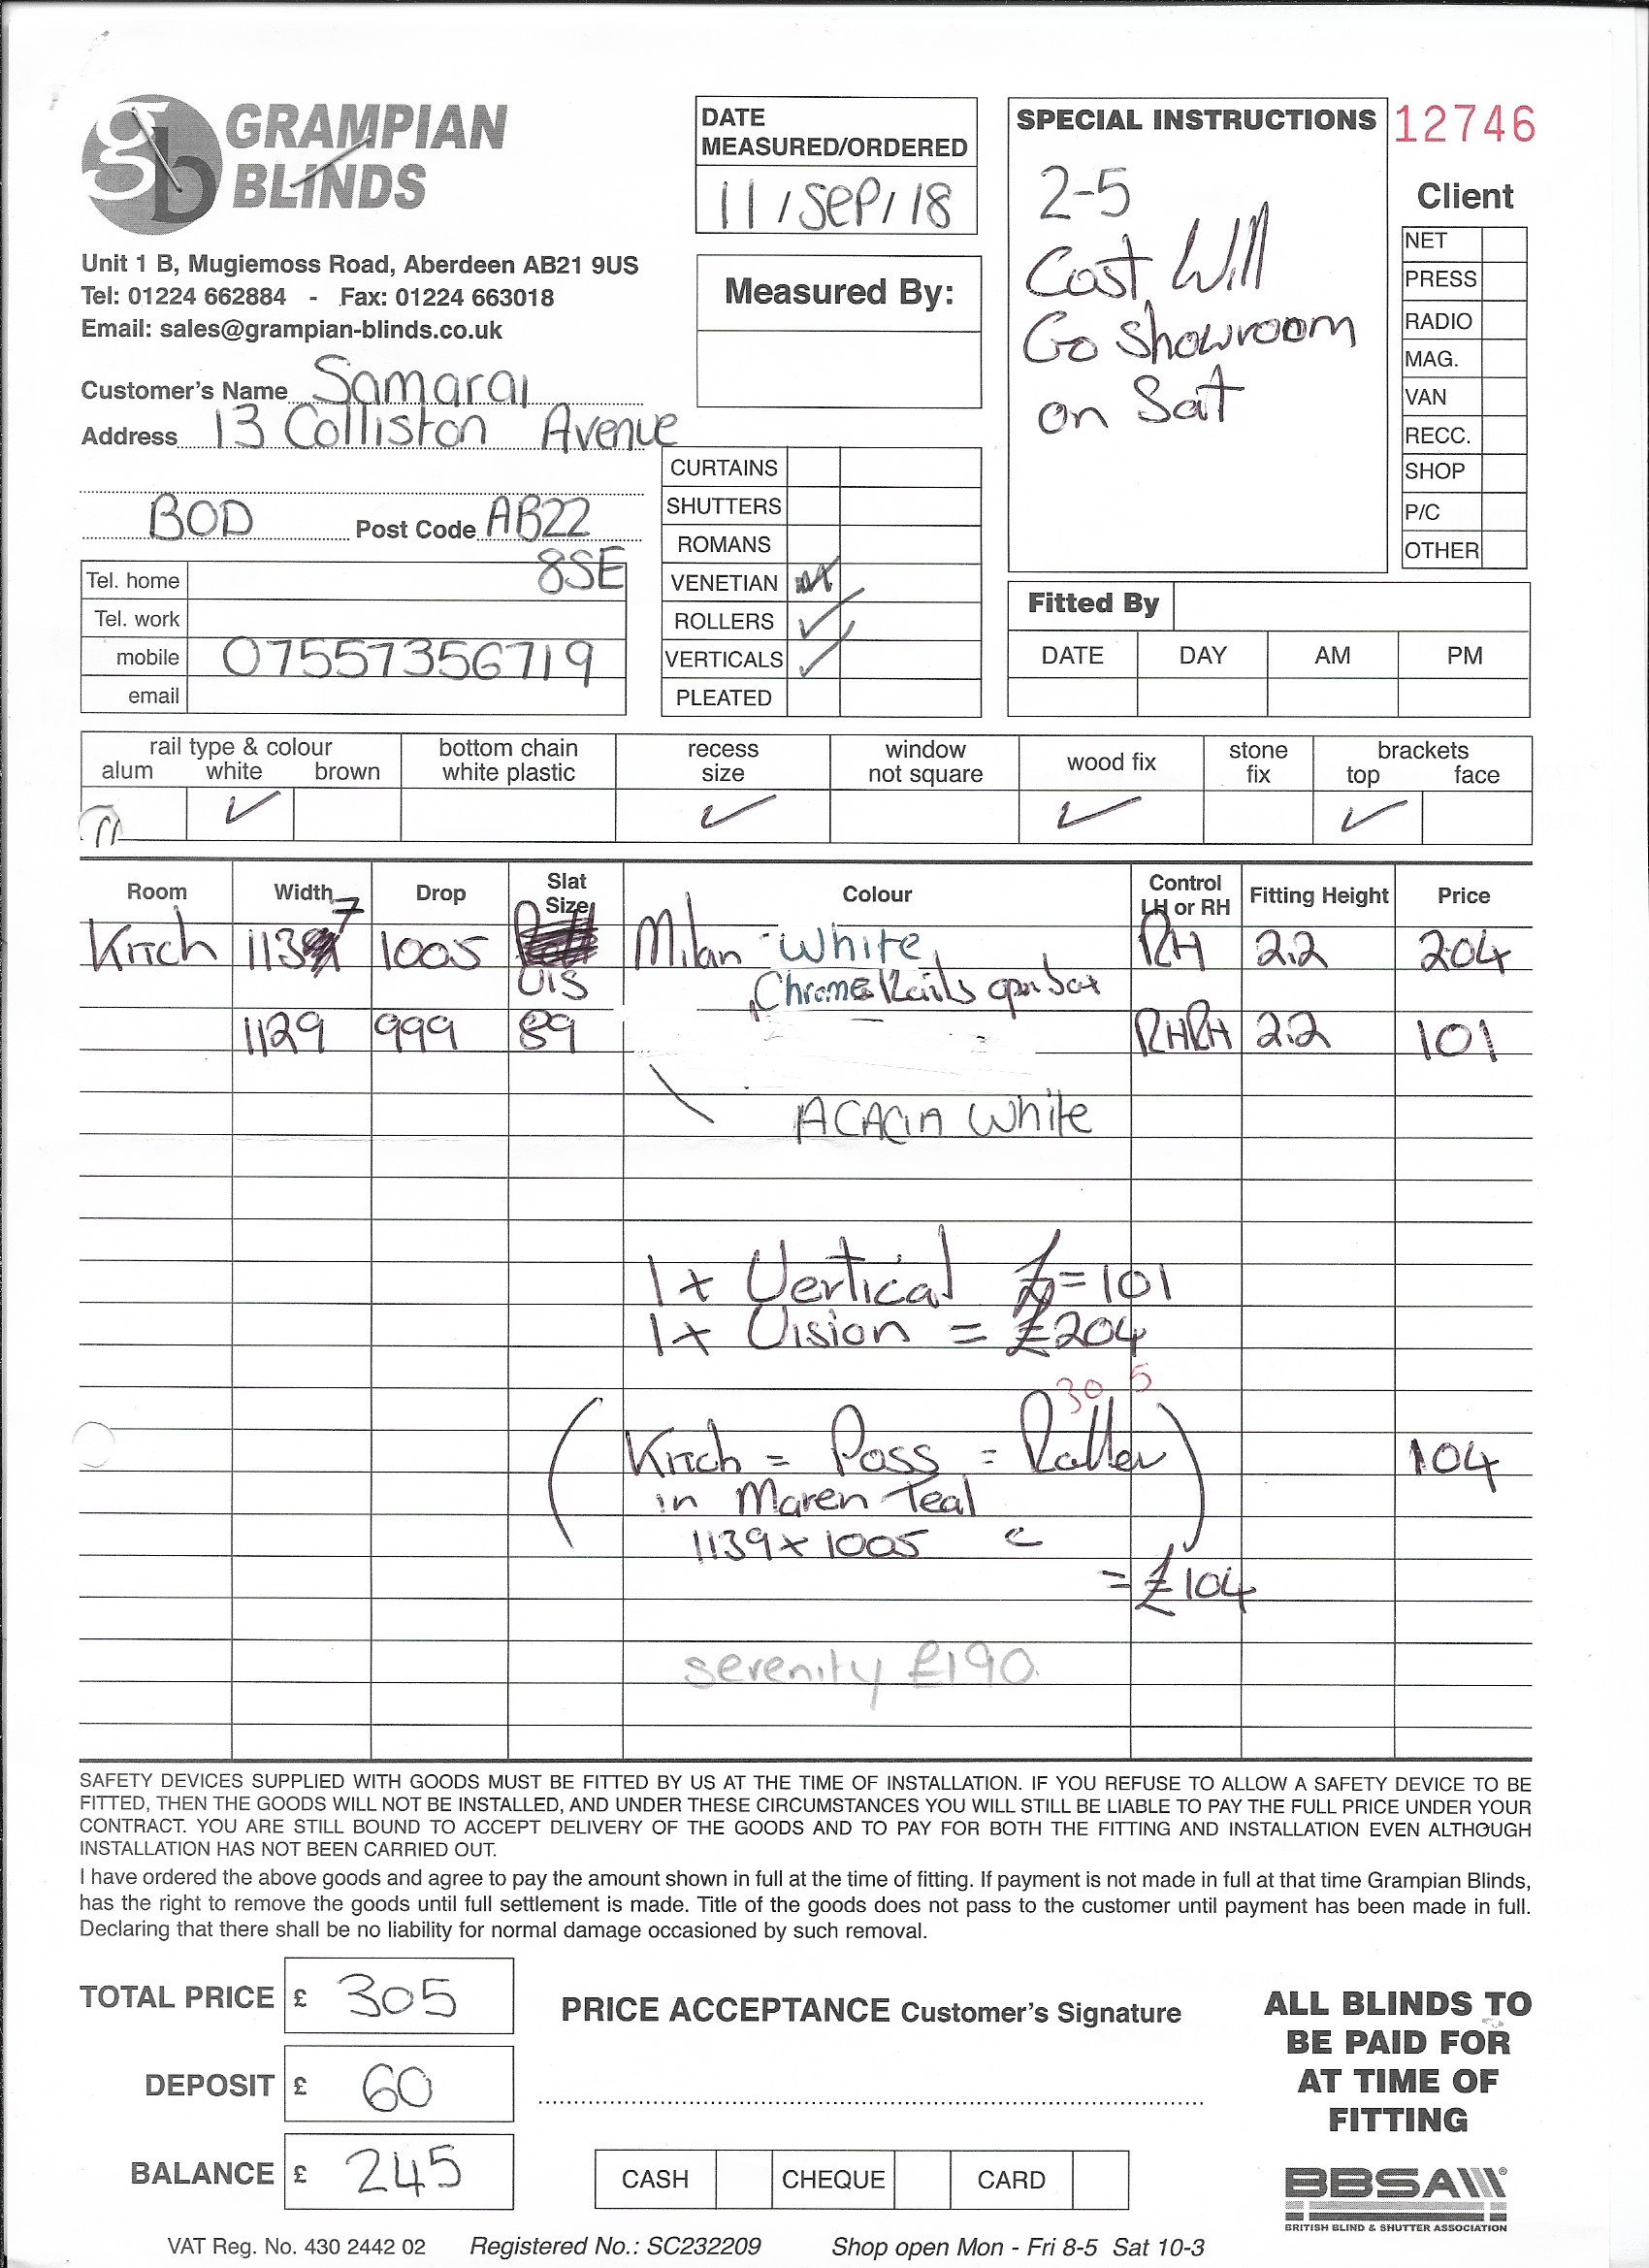 GRAMPIAN
BLINDS
gb
Unit 1 B, Mugiemoss Road, Aberdeen AB21 9US
Tel: 01224 662884 - Fax: 01224 663018
Email: sales@grampian-blinds.co.uk
DATE
MEASURED/ORDERED
11/SEP/18
Measured By:
SPECIAL INSTRUCTIONS
2-5
Cost Will
Go Showroom
on Sat
12746
Client
NET
PRESS
RADIO
MAG.
VAN
RECC.
SHOP
P/C
OTHER
Customer's Name Samarai
Address 13 Colliston Avenue
BOD Post Code AB22
8SE
Tel. home
Tel. work
mobile 07557356719
email
CURTAINS
SHUTTERS
ROMANS
VENETIAN
ROLLERS ✓
VERTICALS ✓
PLEATED
Fitted By
DATE DAY AM PM
rail type & colour
alum white brown
bottom chain
white plastic
recess
size
window
not square
wood fix
stone
fix
brackets
top face
✓ ✓ ✓ ✓
Room Width Drop Slat Size Colour Control LH or RH Fitting Height Price
Kitch 1137 1005 VIS Milan - White RH 2.2 204
Chrome Rails open box
1129 999 89 RHRH 2.2 101
ACACIA White
1 x Vertical £=101
1 x Vision = £204
305
(Kitch = Poss = Roller) 104
in Maren Teal
1139 x 1005
= £104
serenity £190
SAFETY DEVICES SUPPLIED WITH GOODS MUST BE FITTED BY US AT THE TIME OF INSTALLATION. IF YOU REFUSE TO ALLOW A SAFETY DEVICE TO BE
FITTED, THEN THE GOODS WILL NOT BE INSTALLED, AND UNDER THESE CIRCUMSTANCES YOU WILL STILL BE LIABLE TO PAY THE FULL PRICE UNDER YOUR
CONTRACT. YOU ARE STILL BOUND TO ACCEPT DELIVERY OF THE GOODS AND TO PAY FOR BOTH THE FITTING AND INSTALLATION EVEN ALTHOUGH
INSTALLATION HAS NOT BEEN CARRIED OUT.
I have ordered the above goods and agree to pay the amount shown in full at the time of fitting. If payment is not made in full at that time Grampian Blinds,
has the right to remove the goods until full settlement is made. Title of the goods does not pass to the customer until payment has been made in full.
Declaring that there shall be no liability for normal damage occasioned by such removal.
TOTAL PRICE £ 305
DEPOSIT £ 60
BALANCE £ 245
PRICE ACCEPTANCE Customer's Signature
CASH CHEQUE CARD
ALL BLINDS TO
BE PAID FOR
AT TIME OF
FITTING
BBSA
BRITISH BLIND & SHUTTER ASSOCIATION
VAT Reg. No. 430 2442 02 Registered No.: SC232209 Shop open Mon - Fri 8-5 Sat 10-3